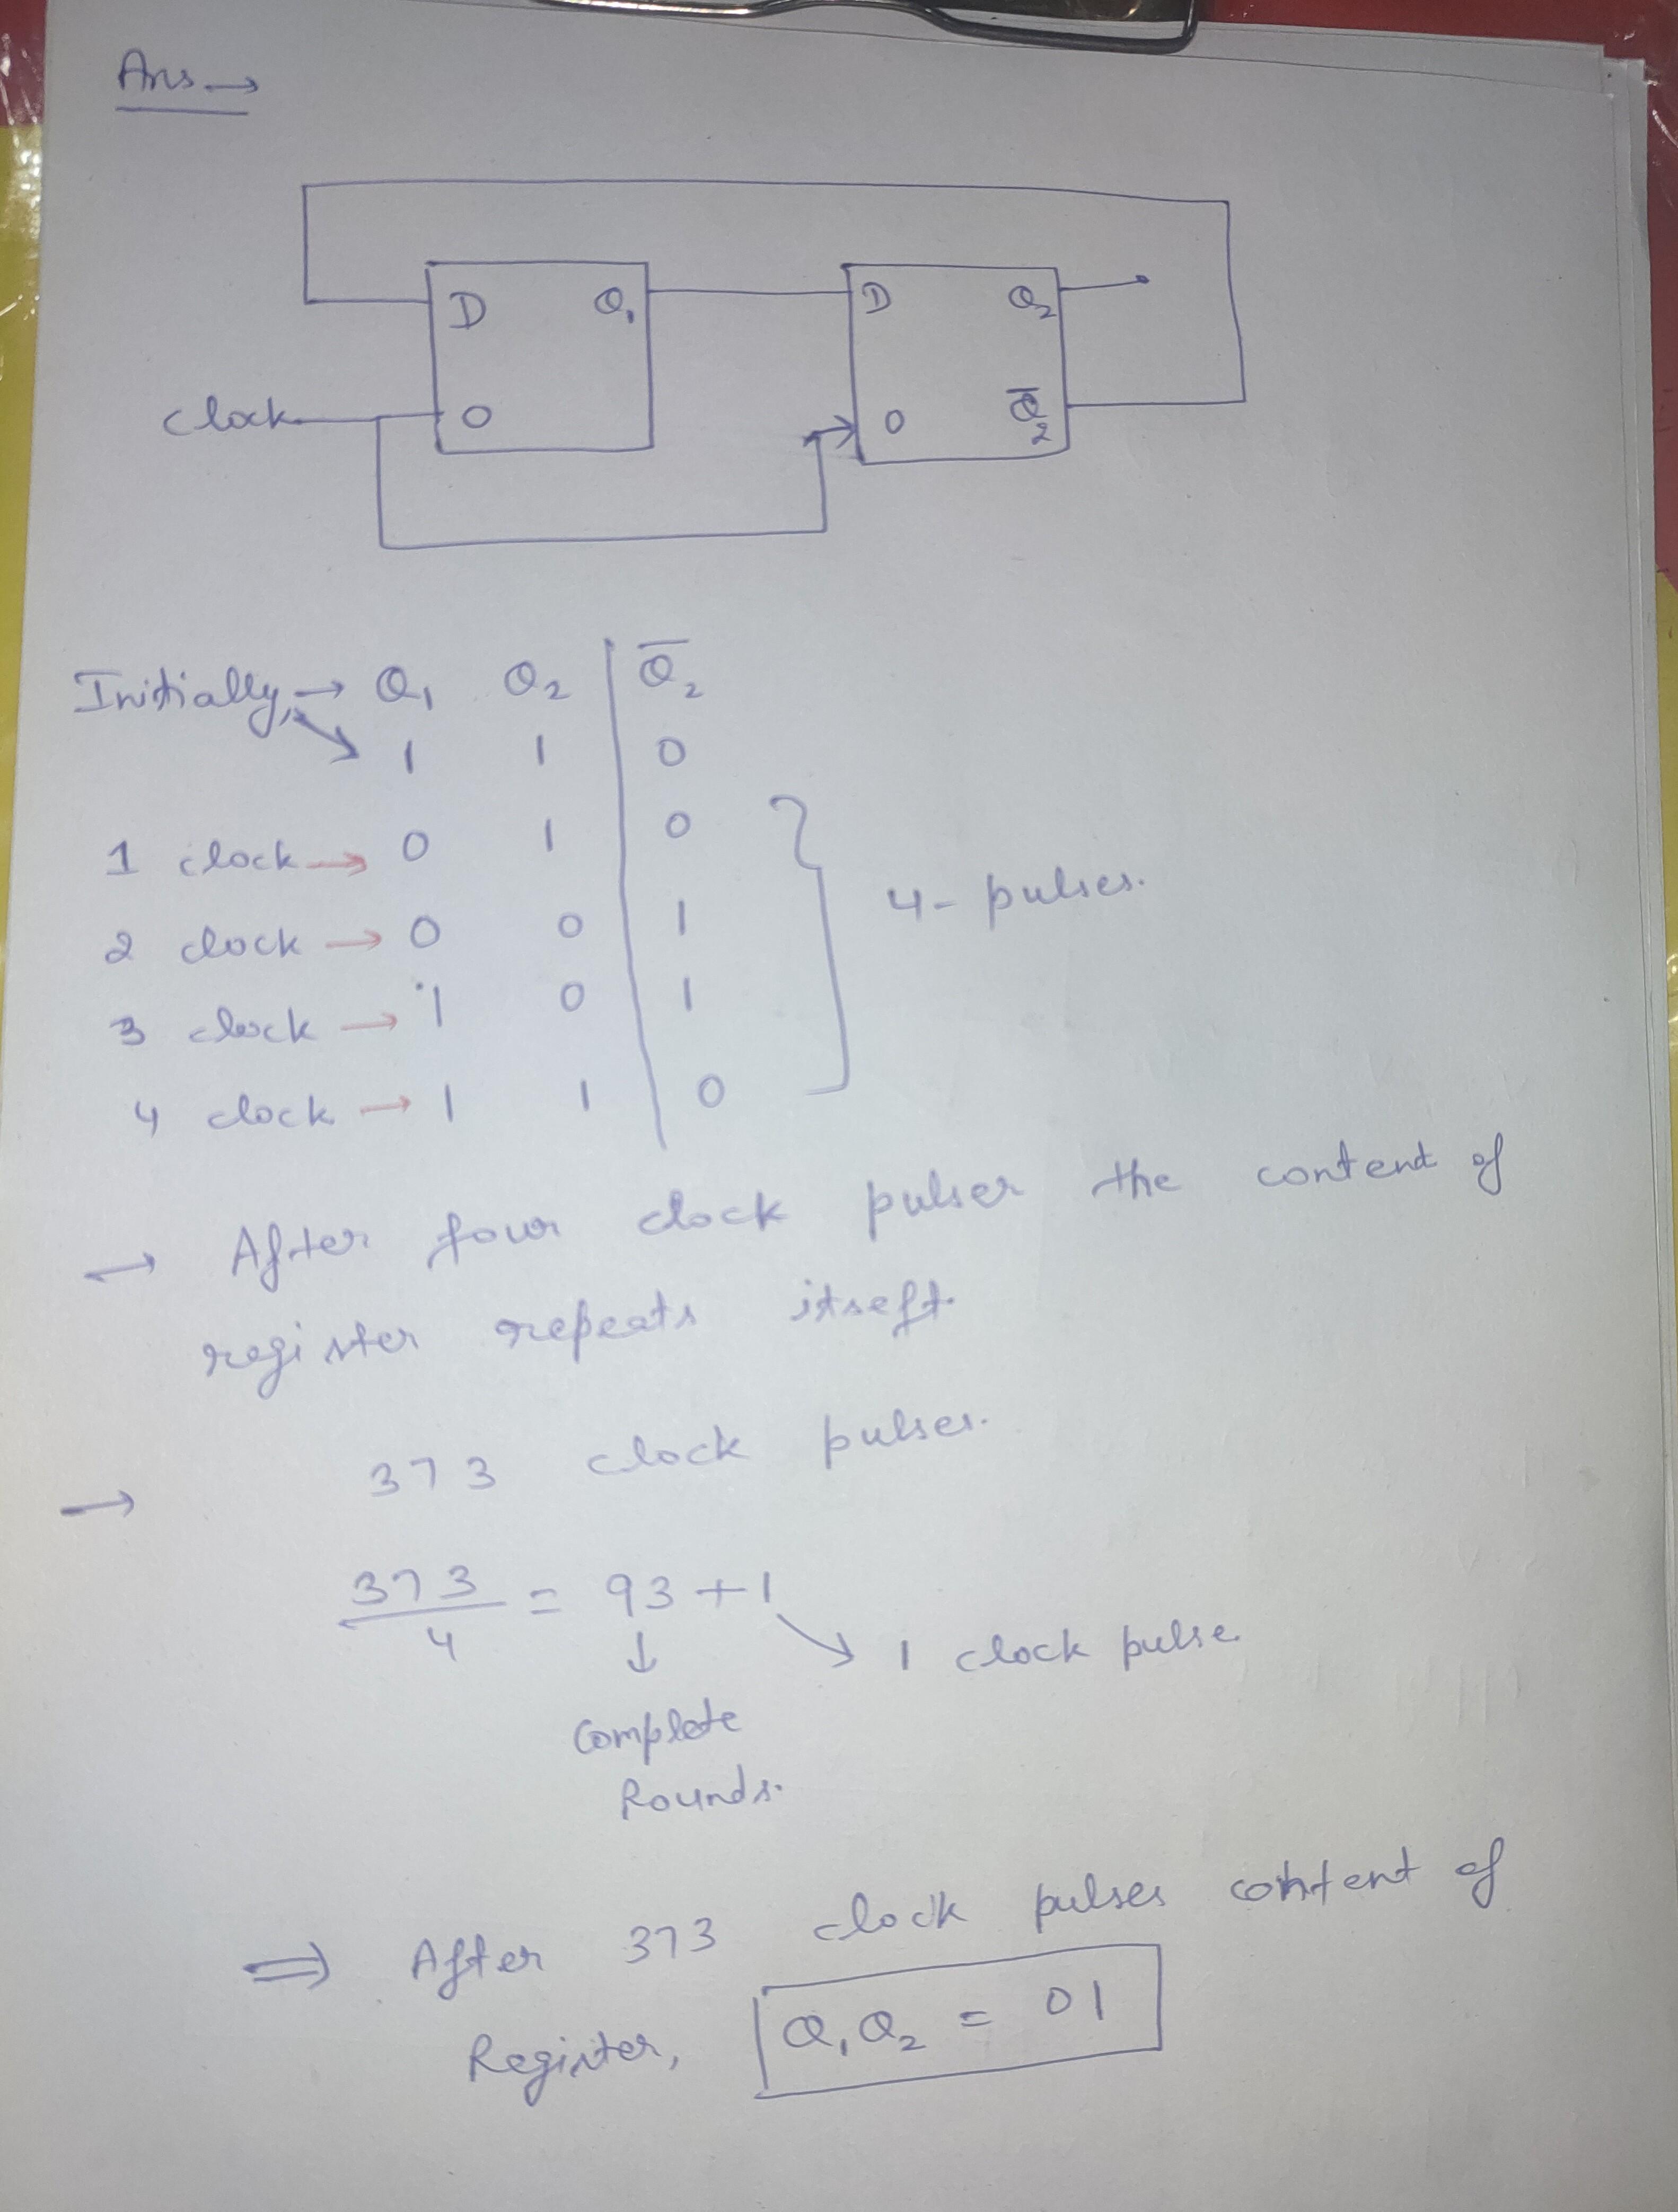 Ans →
D Q₁ D Q₂
clock O O Q̅₂
Initially, → Q₁ Q₂ | Q̅₂
1 1 | 0
1 clock → 0 1 | 0
4- pulses.
2 clock → 0 0 | 1
3 clock → 1 0 | 1
4 clock → 1 1 | 0
→ After four clock pulser the content of
register repeats itseft.
→ 373 clock pulses.
373/4 = 93 + 1
↓ ↘ 1 clock pulse
Complete
Rounds.
⇒ After 373 clock pulses content of
Register, Q₁Q₂ = 01